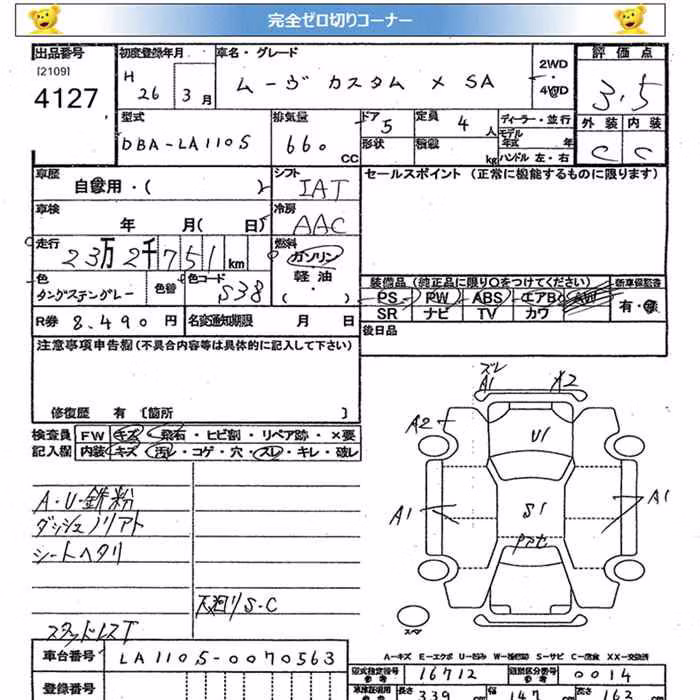 完全ゼロ切りコーナー
出品番号 初度登録年月 車名・グレード 評価点
[2109] H 26 3月 ムーヴ カスタム X SA 2WD・4WD 3.5
4127
型式 排気量 ドア 5 定員 4人 ディーラー・並行 外装 内装
DBA-LA110S 660 CC 形状 積載 kg モデル年式 年 C C
ハンドル 左・右
車歴 自家用・( ) シフト IAT セールスポイント (正常に機能するものに限ります)
車検 年 月( 日) 冷房 AAC
走行 23万2千751km 燃料 ガソリン
軽油
・( ・ )
色 タングステングレー 色替 色コード S38 装備品 (純正品に限り○をつけてください) 新車保証書
PS PW ABS エアB AW 有・無
R券 8,490円 名変通知期限 月 日 SR ナビ TV カワ
後日品
注意事項申告欄(不具合内容等は具体的に記入して下さい)
修復歴 有 [箇所 ]
検査員 FW キズ・飛石・ヒビ割・リペア跡・×要
記入欄 内装 キズ・汚レ・コゲ・穴・スレ・キレ・破レ
A・U・鉄粉
ダッシュノリアト
シートヘタリ
S・C
スタッドレスT
ズレ
A1 X2
A2 U1
A1 S1 A1
スペア
A-キズ E-エクボ U-凹み W-補修跡 S-サビ C-腐食 XX-交換済
車台番号 LA110S-0070563
登録番号
型式指定番号 参考 16712 類別区分番号 参考 0014
長さ 339 幅 147 高さ 162